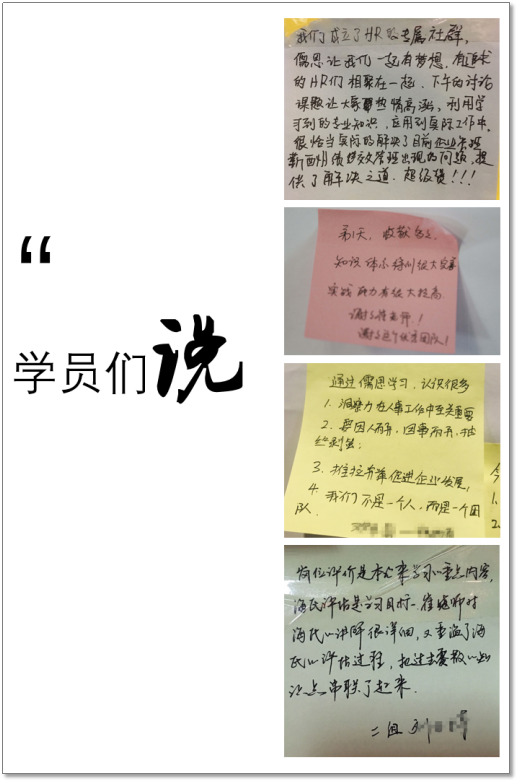 “
学员们说
我们成立了HR的专属社群，
儒思让我们一起有梦想，有追求
的HR们相聚在一起，下午的讨论
课题让大家热情高涨，利用学
习到的专业知识，应用到实际工作中，
很恰当实际的解决了目前企业
薪酬绩效管理出现的问题，提
供了解决之道，超级赞！！！
第1天，收获多多，
知识体系得到很大完善
实战能力有很大提高
谢谢老师！
谢谢这个优秀团队！
通过儒思学习，认识很多
1、洞察力在人事工作中至关重要
2、要因人而异，因事而异，
3、推拉并举促进企业发展，
4、我们不是一个人，而是一个团
队
岗位评价是本次来学习的重点内容，
海氏评估是学习目标，崔老师对
海氏的讲解很详细，又重温了海
氏的评估过程，把过去零散的知
识点串联了起来．
二组